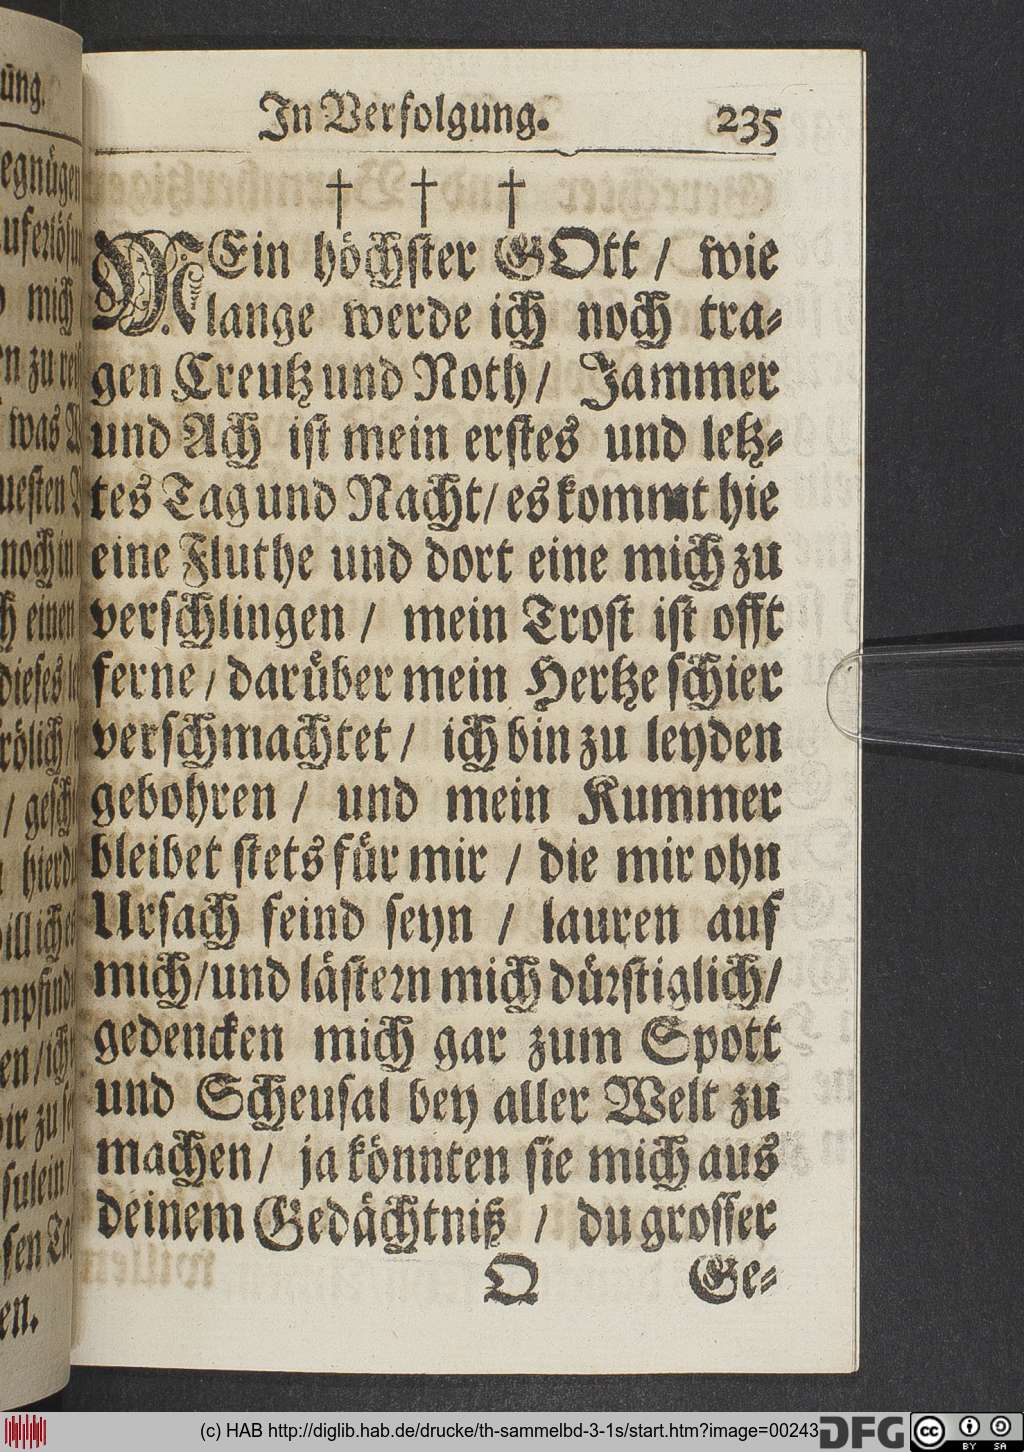 In Verfolgung. 235
† † †
MEin höchster GOtt / wie
lange werde ich noch tra-
gen Creutz und Noth / Jammer
und Ach ist mein erstes und letz-
tes Tag und Nacht / es kommt hie
eine Fluthe und dort eine mich zu
verschlingen / mein Trost ist offt
ferne / darüber mein Hertze schier
verschmachtet / ich bin zu leyden
gebohren / und mein Kummer
bleibet stets für mir / die mir ohn
Ursach feind seyn / lauren auf
mich / und lästern mich dürstiglich /
gedencken mich gar zum Spott
und Scheusal bey aller Welt zu
machen / ja könnten sie mich aus
deinem Gedächtniß / du grosser
Q Ge-
(c) HAB http://diglib.hab.de/drucke/th-sammelbd-3-1s/start.htm?image=00243
DFG
cc BY SA